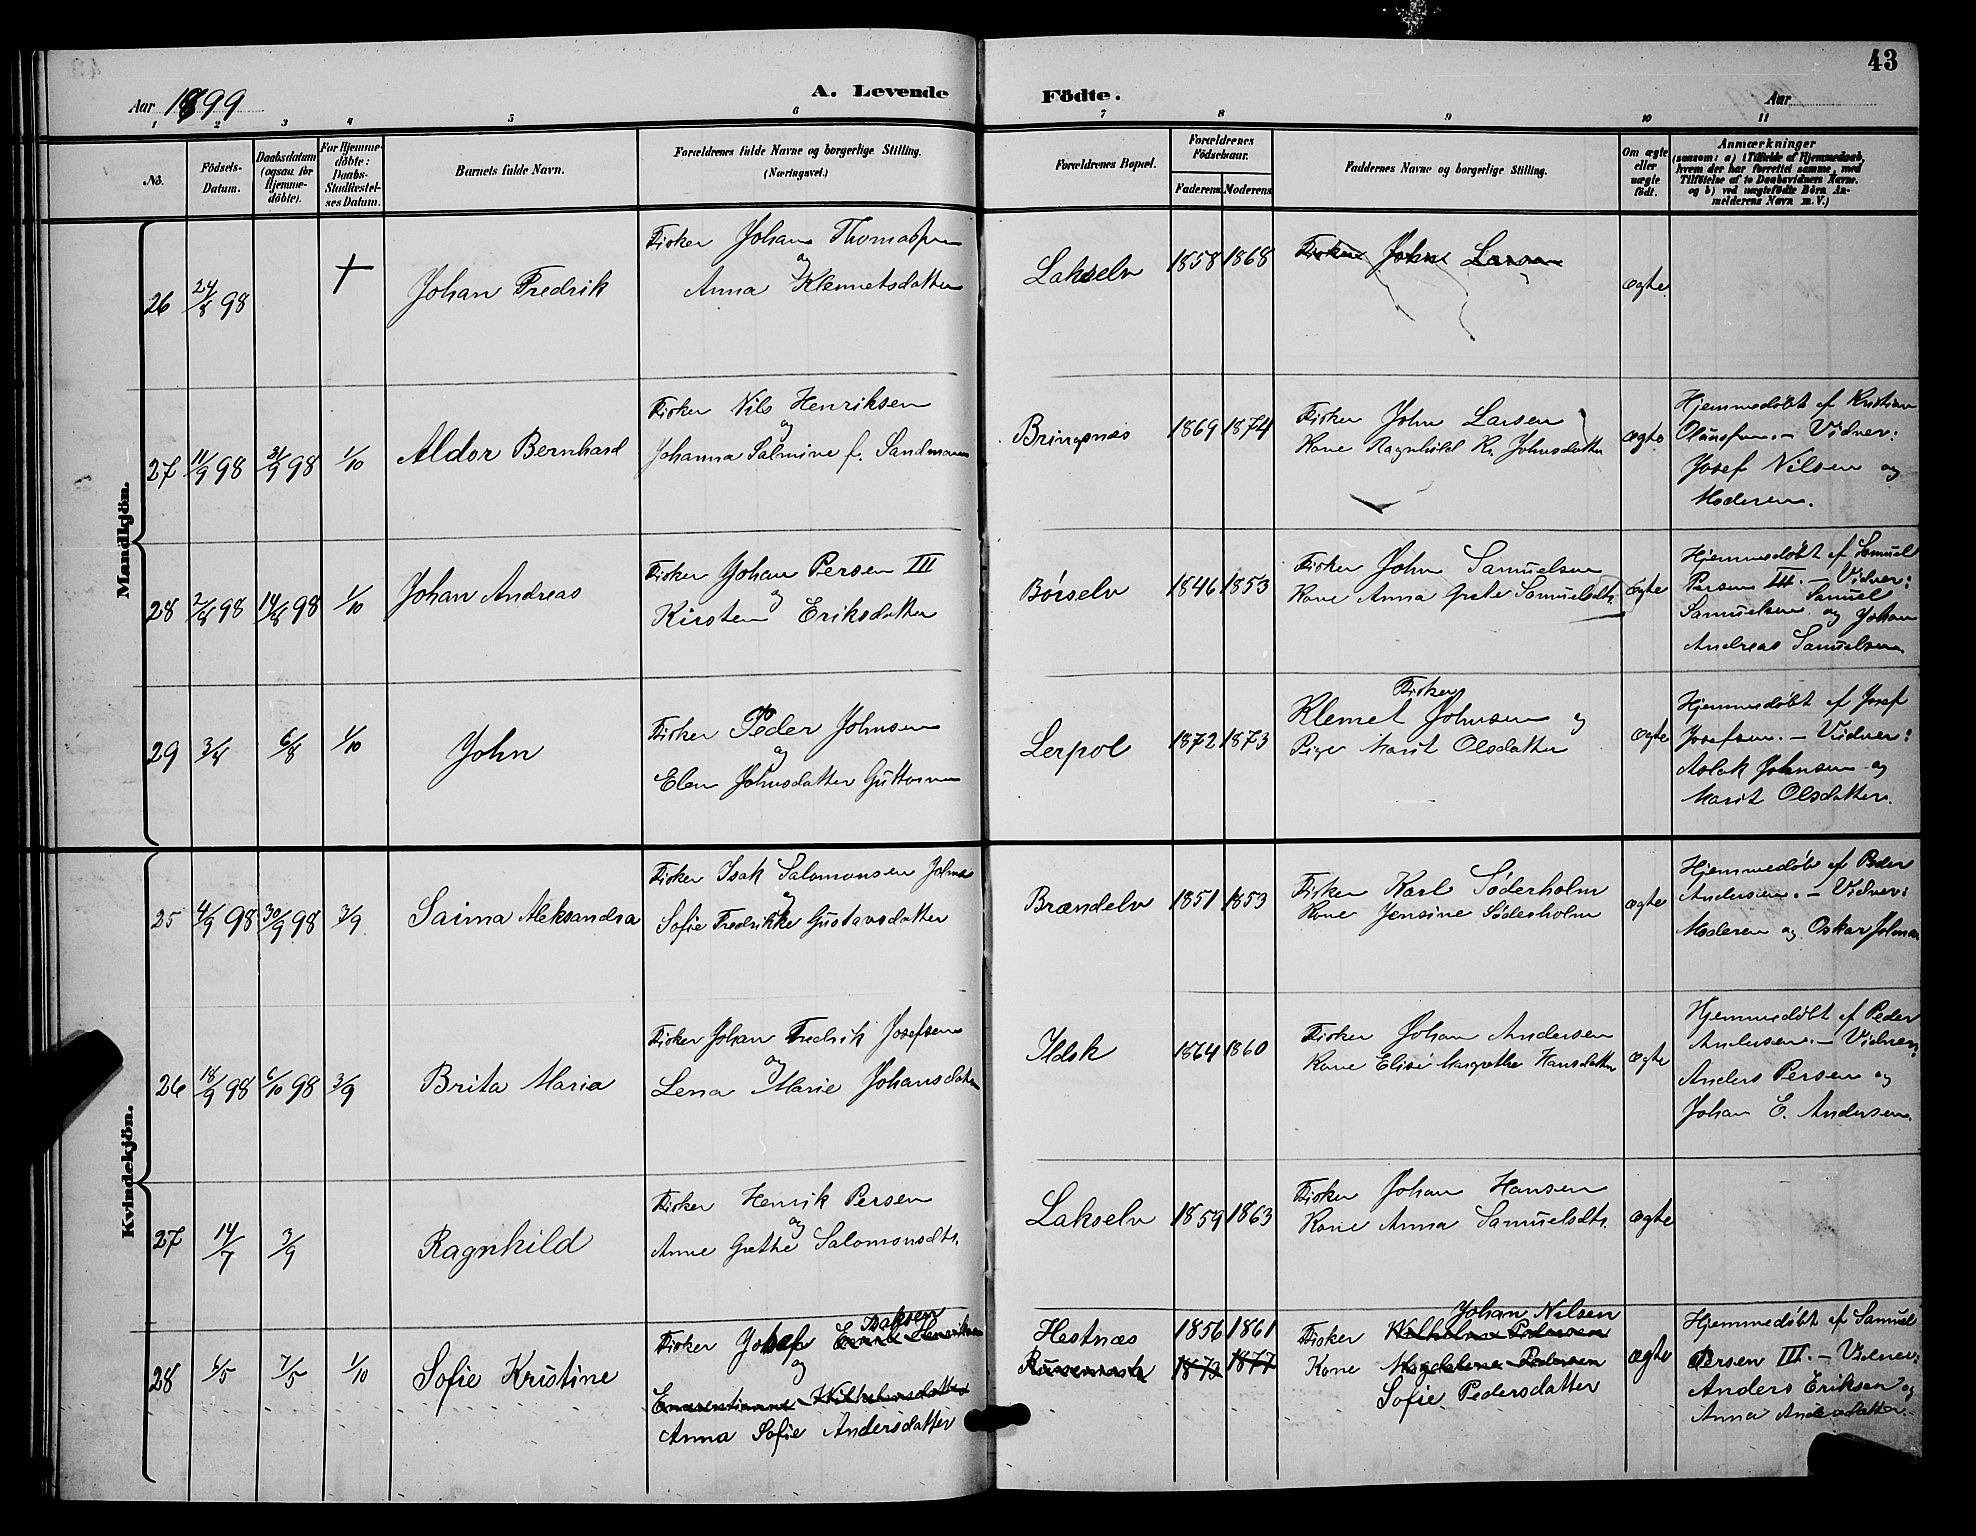 43
Aar 1899
A. Levende
Födte.
Aar
1 2 3 4 5 6 7 8 9 10 11
No.
Födsels-
Datum.
Daabsdatum
(ogsaa for
Hjemme-
døbte).
For Hjemme-
døbte:
Daabs-
Stadfæstel-
ses Datum.
Barnets fulde Navn.
Forældrenes fulde Navne og borgerlige Stilling.
(Næringsvei.)
Forældrenes Bopæl.
Forældrenes
Födselsaar.
Faderens. Moderens.
Faddernes Navne og borgerlige Stilling.
Om ægte
eller
uægte
födt.
Anmærkninger
(saasom: a) i Tilfælde af Hjemmedaab,
hvem der har forrettet samme, med
Tilföielse af to Daabsvidners Navne,
og b) ved uægtefödte Börn An-
melderens Navn m. V.)
Mandkjön.
26 24/8 98 + Johan Fredrik
Fisker Johan Thomassen
og
Anna Klemetsdatter
Lakselv 1858 1868 Fisker John Larsen ægte
27 11/9 98 98 1/10 Aldor Bernhard
Fisker Nils Henriksen
og
Johanna Salmine f. Sandmann
Bringnæs 1869 1874
Fisker John Larsen
Kone Ragnhild Kr. Johnsdatter
ægte
Hjemmedøbt af Kristian
Olaussen. – Vidner:
Josef Nilsen og
Moderen.
28 98 14/8 98 1/10 Johan Andreas
Fisker Johan Persen III
og
Kirsten Eriksdatter
Børselv 1846 1853
Fisker John Samuelsen
Kone Anna Grete Samuelsdtr.
ægte
Hjemmedøbt af Samuel
Persen III. – Vidner:
Samuel
Samuelsen og Johan
Andreas Samuelsen
29 3/4 6/8 1/10 John
Fisker Peder Johnsen
og
Elen Johnsdatter Guttorm
Lerpol 1872 1873
Fisker
Klemet Johnsen og
Pige Marit Olsdatter
ægte
Hjemmedøbt af Josef
Josefsen. – Vidner:
Aslak Johnsen og
Marit Olsdatter.
Kvindekjön.
25 4/9 98 30/9 98 3/9 Saima Aleksandra
Fisker Isak Salomonsen Jolma
og
Sofie Fredrikke Gustavsdatter
Brændelv 1851 1853
Fisker Karl Söderholm
Kone Jensine Söderholm
ægte
Hjemmedøbt af Peder
Andersen. – Vidner:
Moderen og Oskar Jolma
26 18/9 98 6/10 98 3/9 Brita Maria
Fisker Johan Fredrik Josefsen
og
Lena Marie Johansdatter
Ildsk 1864 1860
Fisker Johan Andersen
Kone Elise Margrethe Hansdatter
ægte
Hjemmedøbt af Peder
Andersen. – Vidner:
Anders Persen og
Johan E. Andersen.
27 14/7 3/9 Ragnhild
Fisker Henrik Persen
og
Anne Grethe Salomonsdtr.
Lakselv 1859 1863
Fisker Johan Hansen
Kone Anna Samuelsdtr.
ægte
28 6/5 7/5 1/10 Sofie Kristine
Isaksen
Fisker Josef Henriksen
og
Wilhelmsdatter
Anna Sofie Andersdatter
Hestnæs 1856 1861
1873 1877
Johan Nilsen
Fisker Wilhelm Pedersen
Kone Magdalena Pedersen
Sofie Pedersdatter
ægte
Hjemmedøbt af Samuel
Persen III. – Vidner:
Anders Eriksen og
Anna Andersdatter.